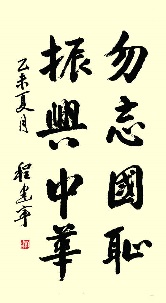 勿忘國恥
振興中華
乙未夏月
程建軍